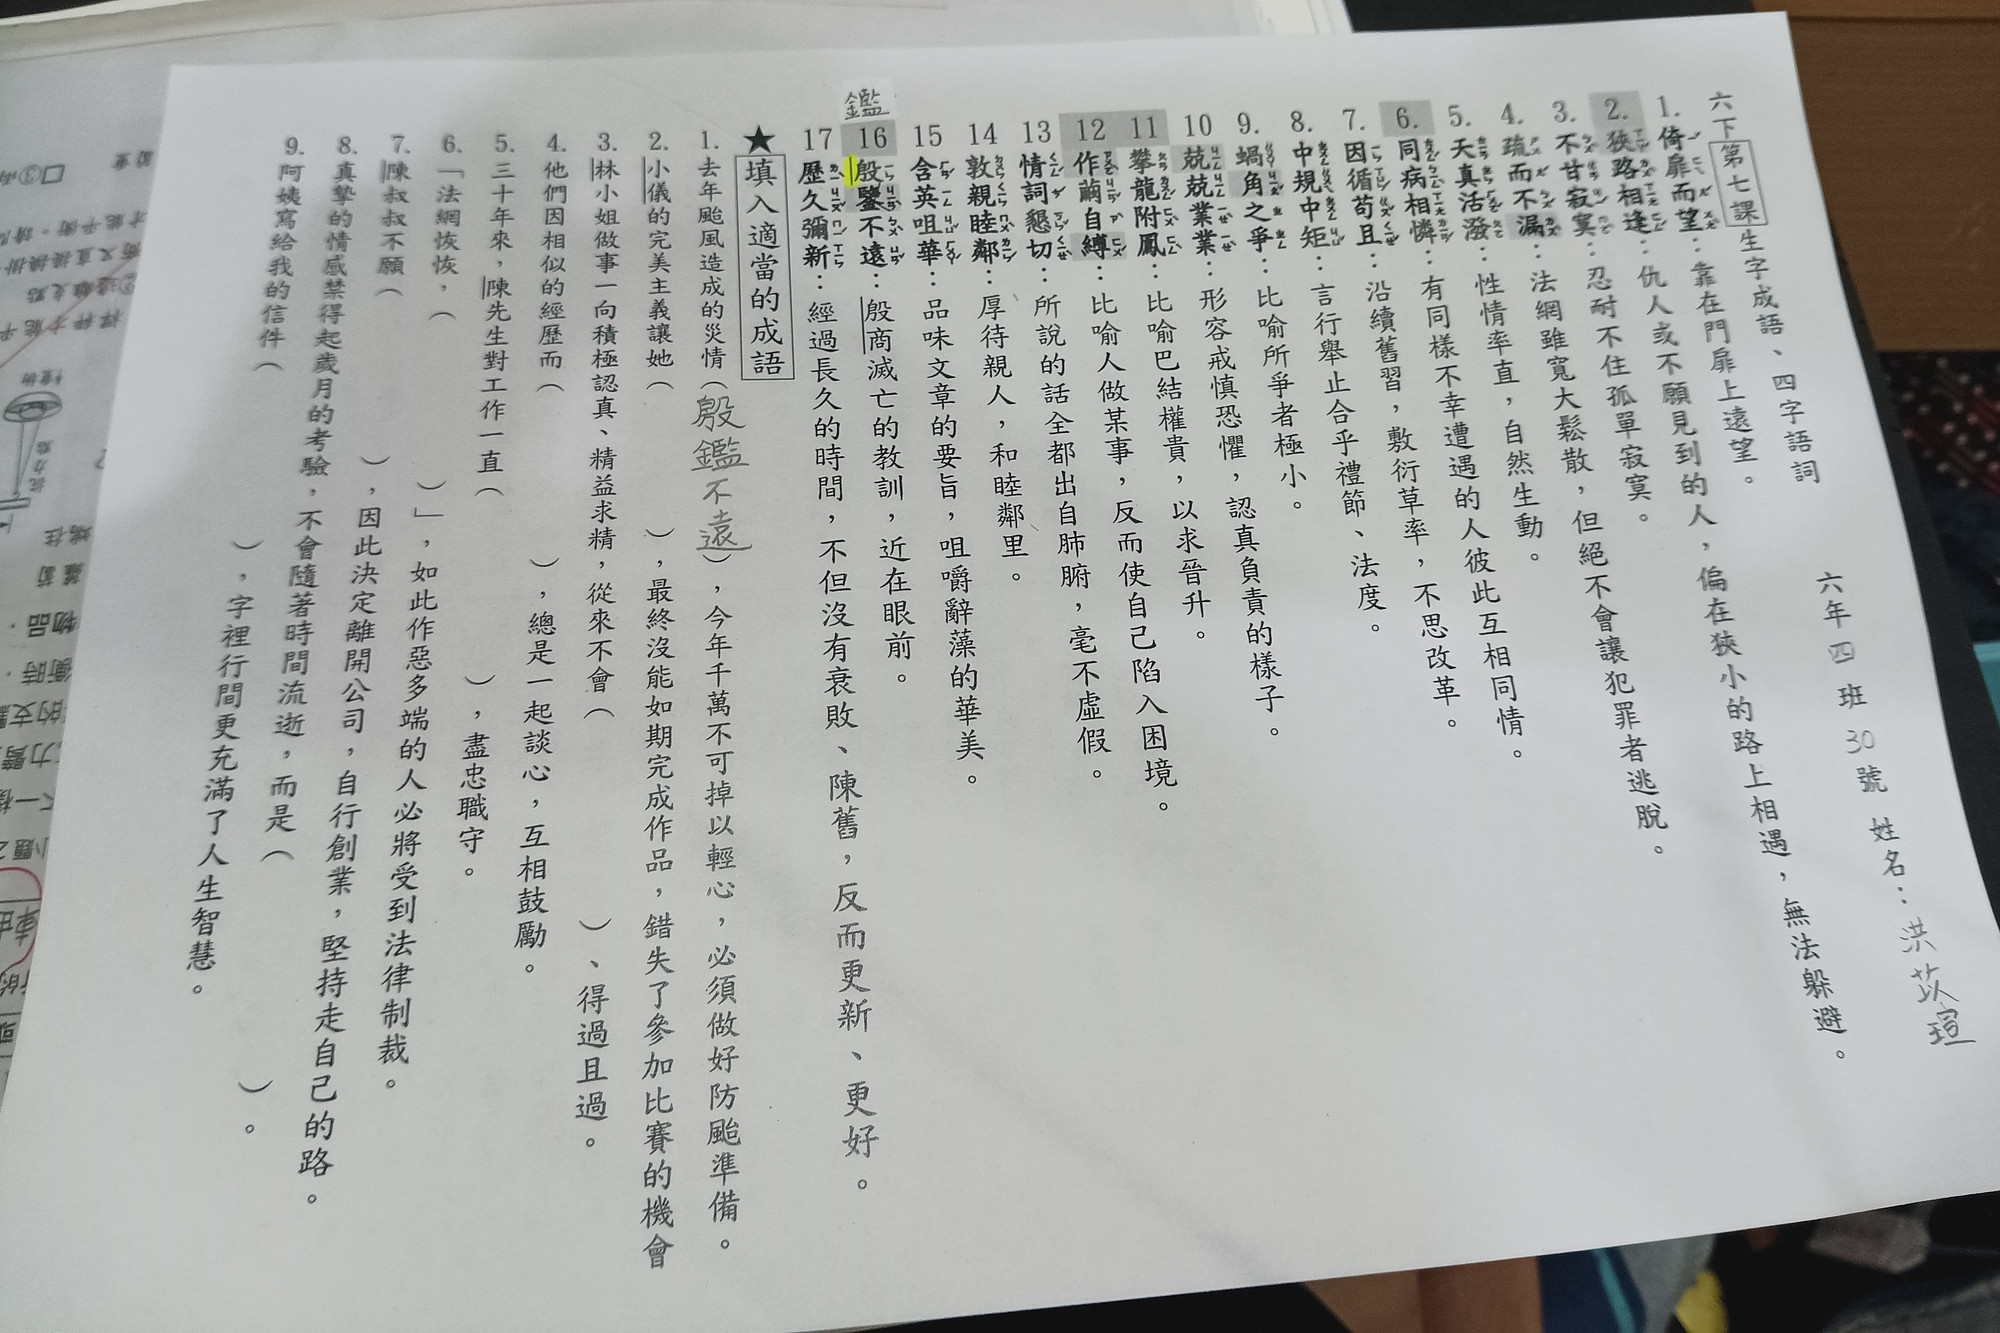 六下第七課生字成語、四字語詞
六年四班30號 姓名：洪苡瑄
1.倚扉而望：靠在門扉上遠望。
2.狹路相逢：仇人或不願見到的人，偏在狹小的路上相遇，無法躲避。
3.不甘寂寞：忍耐不住孤單寂寞。
4.疏而不漏：法網雖寬大鬆散，但絕不會讓犯罪者逃脫。
5.天真活潑：性情率直，自然生動。
6.同病相憐：有同樣不幸遭遇的人彼此互相同情。
7.因循苟且：沿續舊習，敷衍草率，不思改革。
8.中規中矩：言行舉止合乎禮節、法度。
9.蝸角之爭：比喻所爭者極小。
10 兢兢業業：形容戒慎恐懼，認真負責的樣子。
11 攀龍附鳳：比喻巴結權貴，以求晉升。
12 作繭自縛：比喻人做某事，反而使自己陷入困境。
13 情詞懇切：所說的話全都出自肺腑，毫不虛假。
14 敦親睦鄰：厚待親人，和睦鄰里。
15 含英咀華：品味文章的要旨，咀嚼辭藻的華美。
鑑
16 殷鑒不遠：殷商滅亡的教訓，近在眼前。
17 歷久彌新：經過長久的時間，不但沒有衰敗、陳舊，反而更新、更好。
★填入適當的成語
1.去年颱風造成的災情（殷鑑不遠），今年千萬不可掉以輕心，必須做好防颱準備。
2.小儀的完美主義讓她（ ），最終沒能如期完成作品，錯失了參加比賽的機會
3.林小姐做事一向積極認真、精益求精，從來不會（ ）、得過且過。
4.他們因相似的經歷而（ ），總是一起談心，互相鼓勵。
5.三十年來，陳先生對工作一直（ ），盡忠職守。
6.「法網恢恢，（ ）」，如此作惡多端的人必將受到法律制裁。
7.陳叔叔不願（ ），因此決定離開公司，自行創業，堅持走自己的路。
8.真摯的情感禁得起歲月的考驗，不會隨著時間流逝，而是（ ）。
9.阿姨寫給我的信件（ ），字裡行間更充滿了人生智慧。